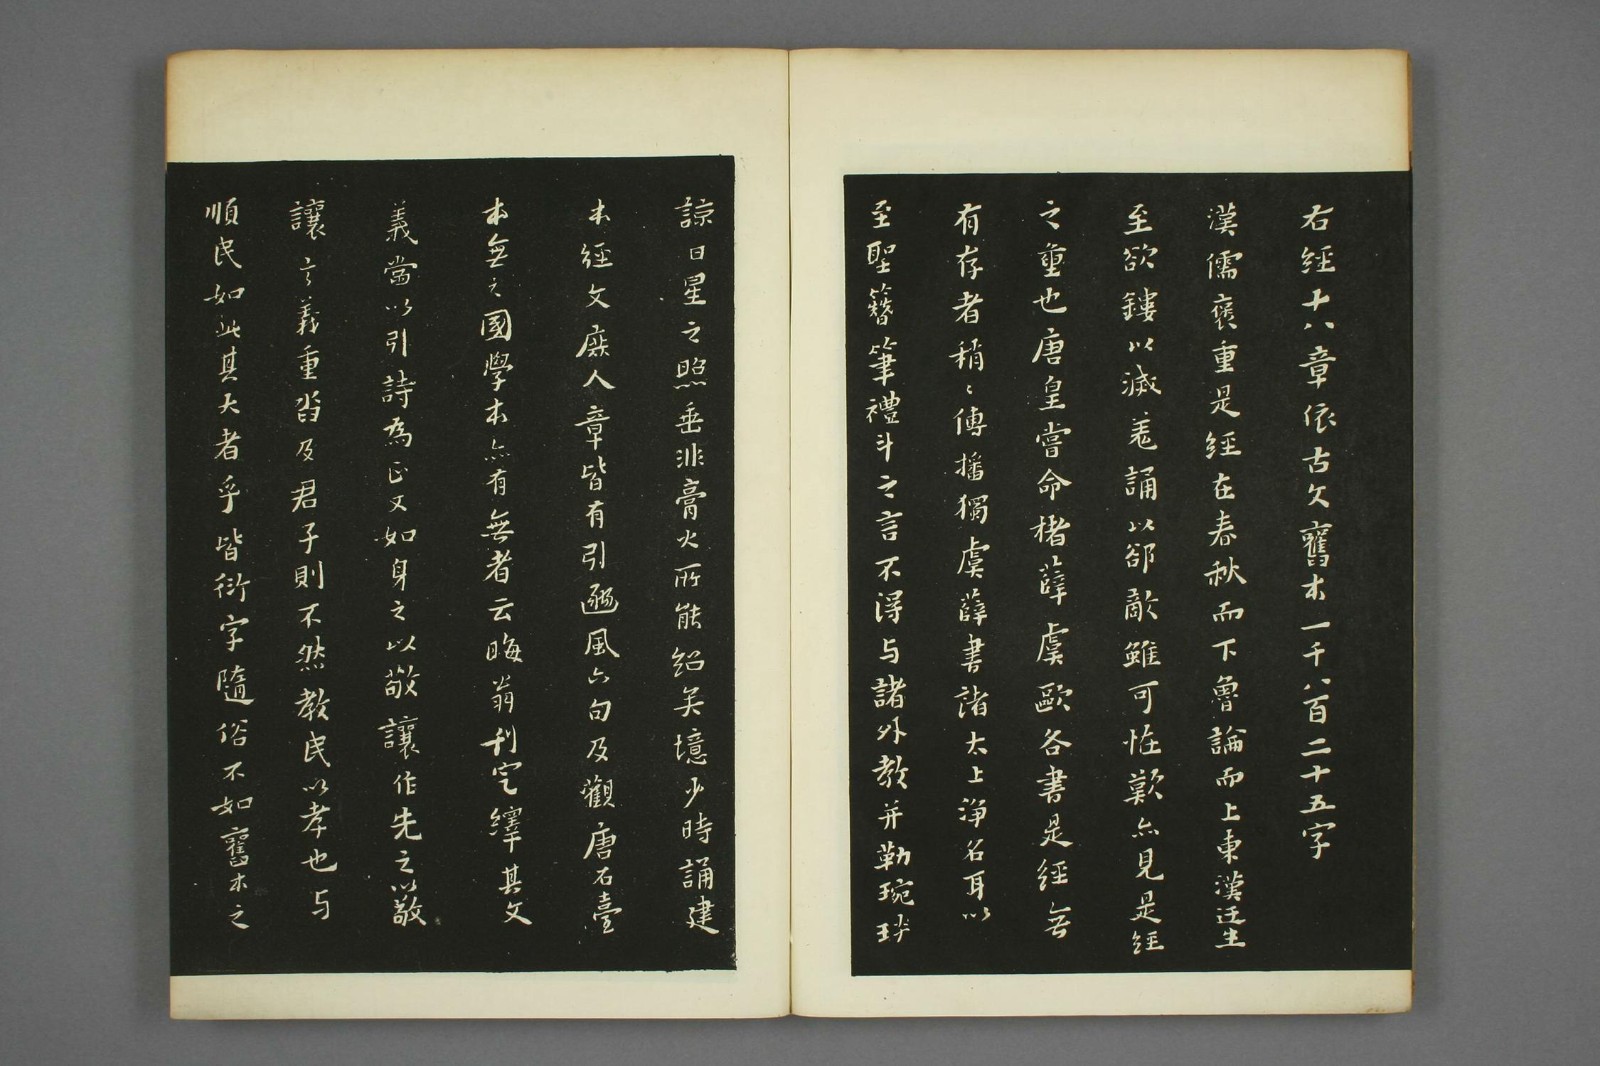 右經十八章依古文舊本一千八百二十五字
漢儒褒重是經在春秋而下魯論而上東漢迂生
至欲鏤以滅羌誦以郤敵雖可怪歎亦見是經
之重也唐皇嘗命楮薛虞歐各書是經無
有存者稍〻傳播獨虞薛書諸太上淨名耳以
至聖簪筆禮斗之言不得与諸外教并勒琬琰
諒日星之照垂非膏火所能紹矣憶少時誦建
本經文庶人章皆有引豳風六句及觀唐石臺
本無之國學本亦有無者云晦翁刊定繹其文
義當以引詩為正又如身之以敬讓作先之以敬
讓言義重沓及君子則不然教民以孝也与
順民如此其大者乎皆衍字隨俗不如舊本之